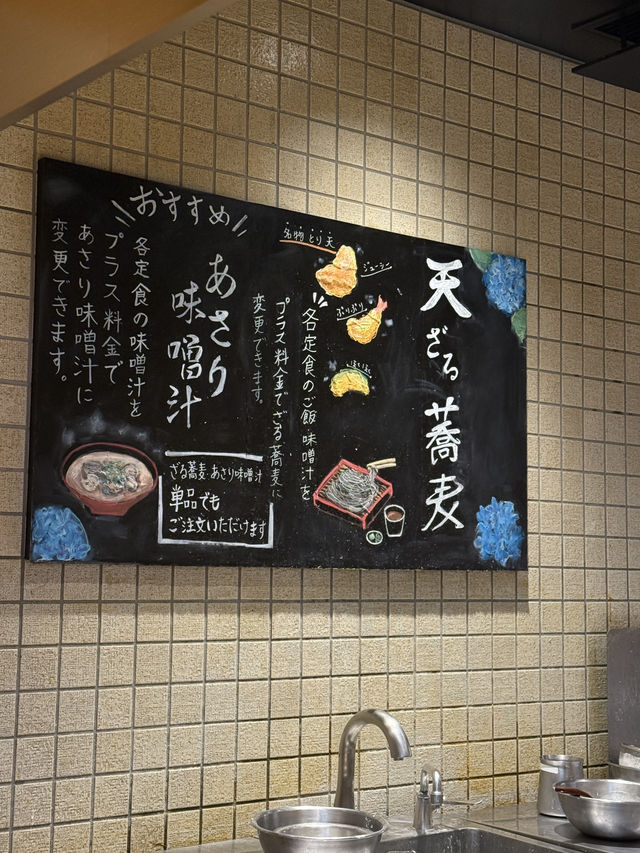 天ざる蕎麦
名物とり天
ジューシー
ぷりぷり
ほくほく
各定食のご飯・味噌汁を
プラス料金でざる蕎麦に
変更できます。
おすすめ
あさり
味噌汁
各定食の味噌汁を
プラス料金で
あさり味噌汁に
変更できます。
ざる蕎麦・あさり味噌汁
単品でも
ご注文いただけます